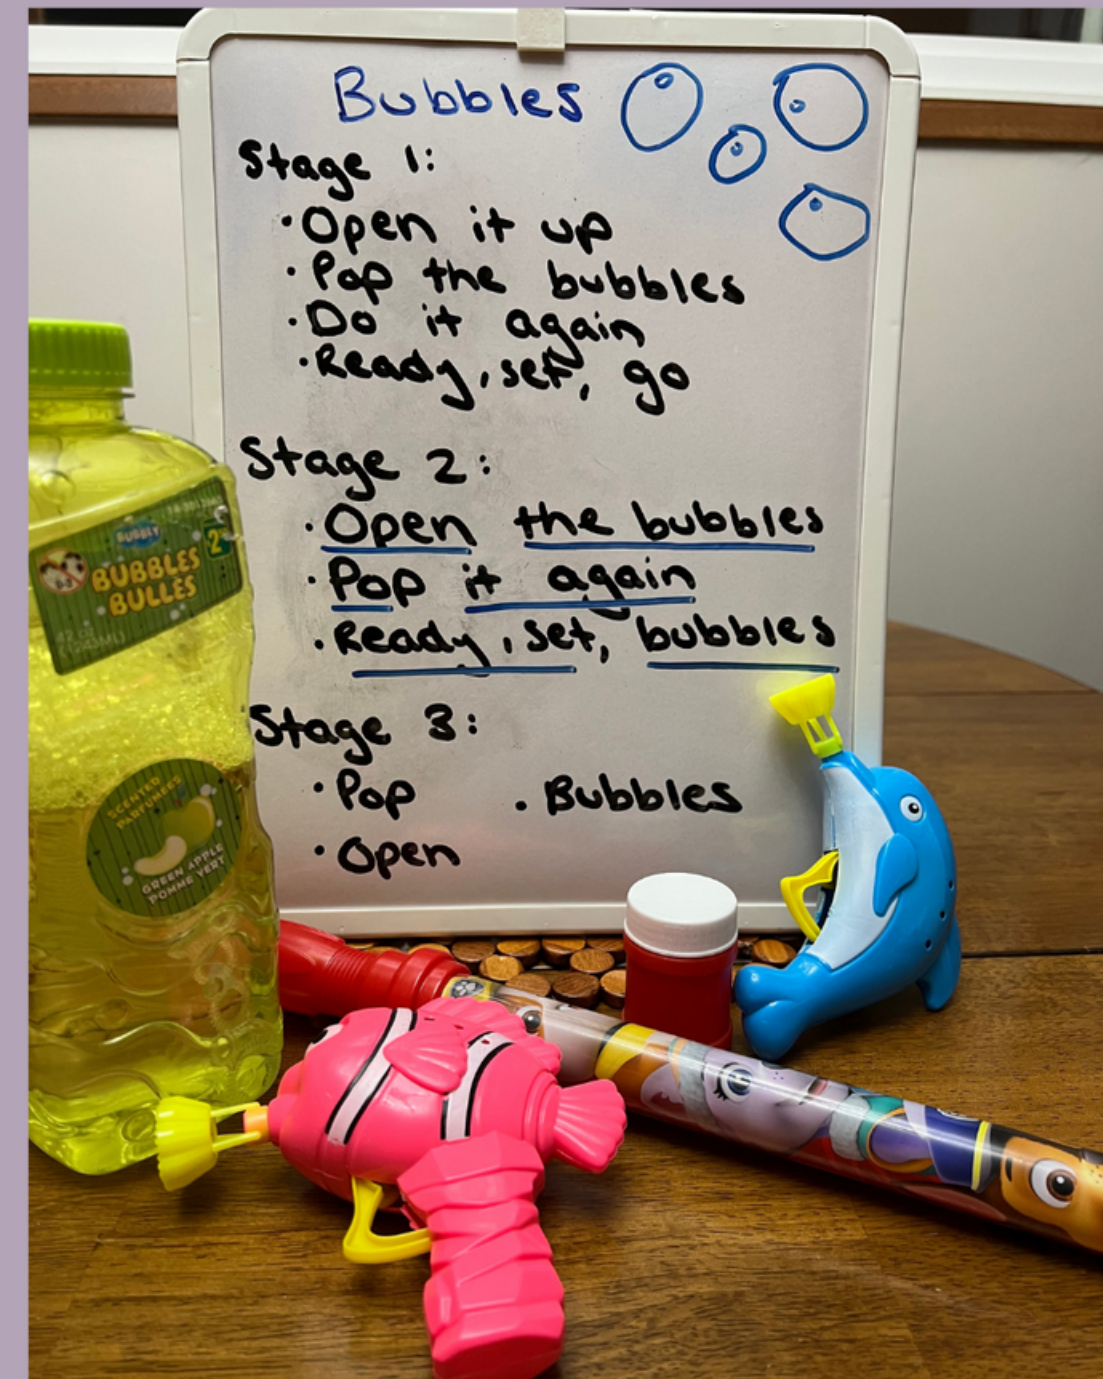 Bubbles
Stage 1:
• Open it up
• Pop the bubbles
• Do it again
• Ready, set, go
Stage 2:
• Open the bubbles
• Pop it again
• Ready, set, bubbles
Stage 3:
• Pop • Bubbles
• Open
BUBBLY
BUBBLES
BULLES
SCENTED
PARFUMÉES
GREEN APPLE
POMME VERT